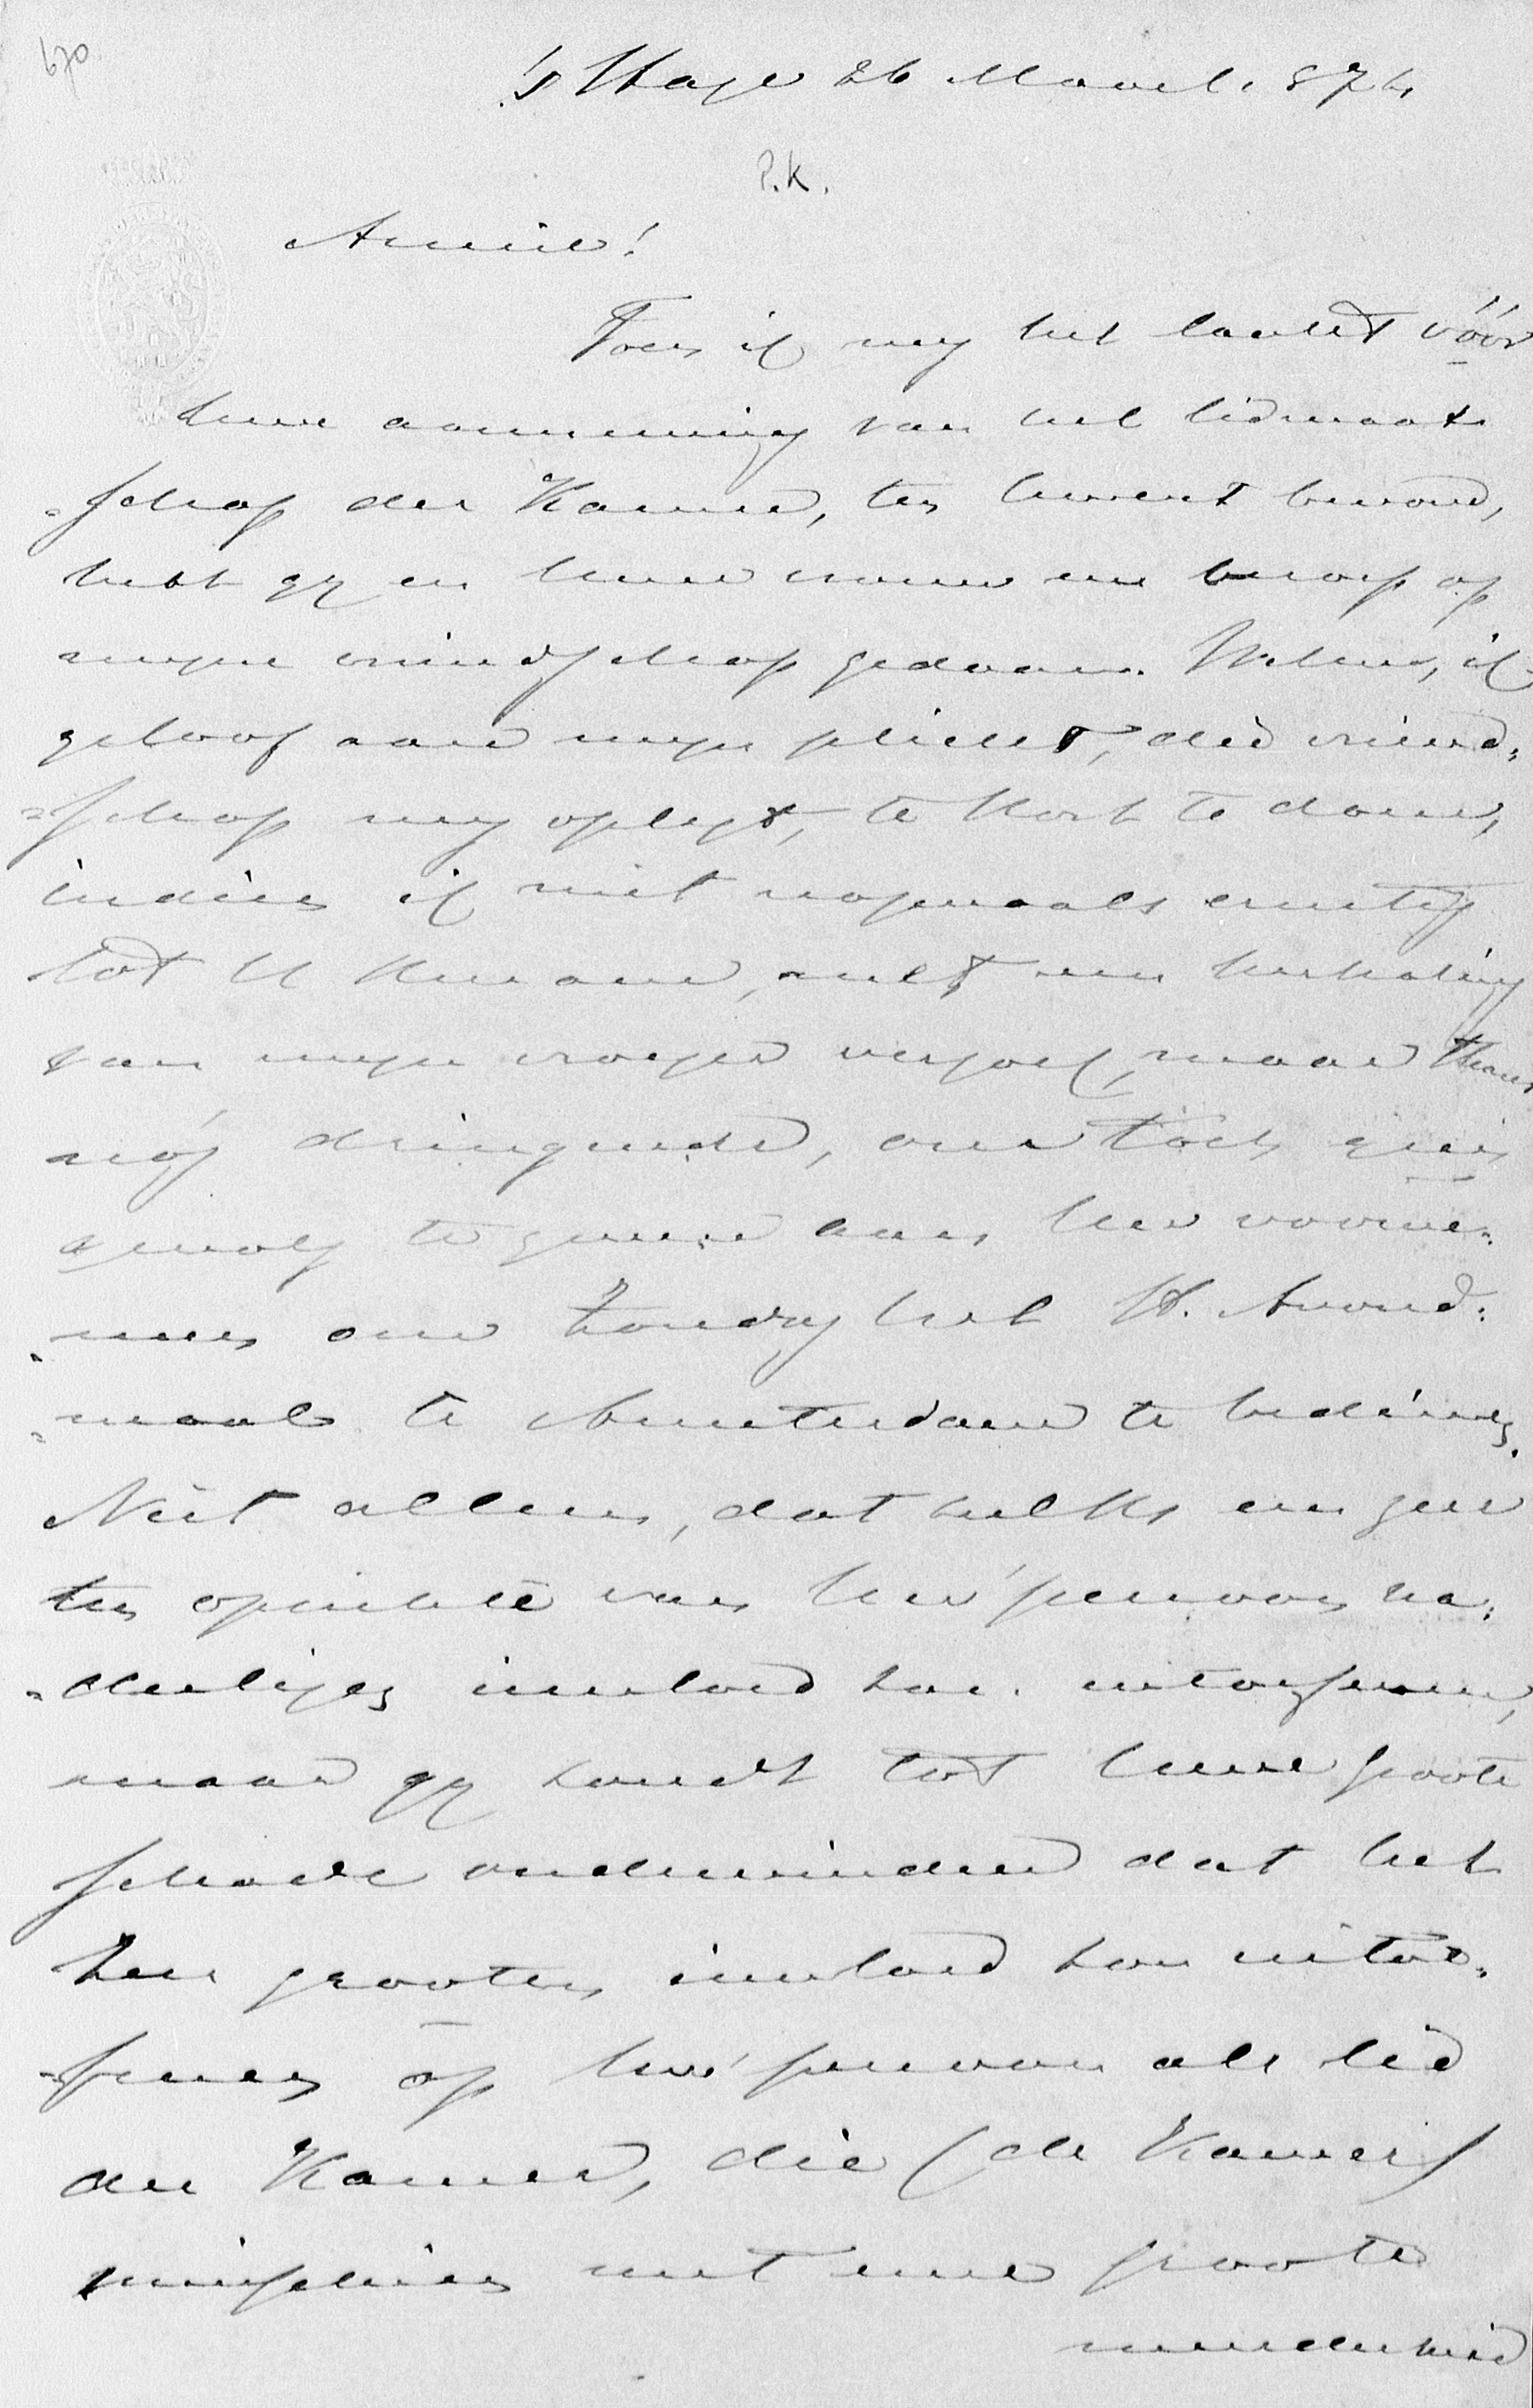 670
's Hage 26 Maart 1874
P.K.
Amice!
Toen ik my het laatst vóór
Uwe aanneming van het lidmaat-
-schap der Kamer, ten Uwent bevond,
hebt gy en Uwe vrouw een beroep op
myne vriendschap gedaan. Welnu, ik
geloof aan myn plicht, die vriend-
-schap my oplegt, te kort te doen,
indien ik niet nogmaals ernstig
tot U kwame, met een herhaling
van myn vroeger verzoek, maar thans
nóg dringender, om toch geen
gevolg te geven aan Uw voorne-
-men om Zondag het H. Avond-
-maal te Amsterdam te bedienen.
Niet alleen, dat zulks een zeer
ten opzichte van Uw persoon na-
-deeligen invloed zou uitoefenen,
maar gy zoudt tot Uwe groote
schade ondervinden dat het
een grooten invloed zou uitoe-
-fenen op Uw persoon als lid
der Kamer, die (de Kamer)
misschien met eene groote
meerderheid